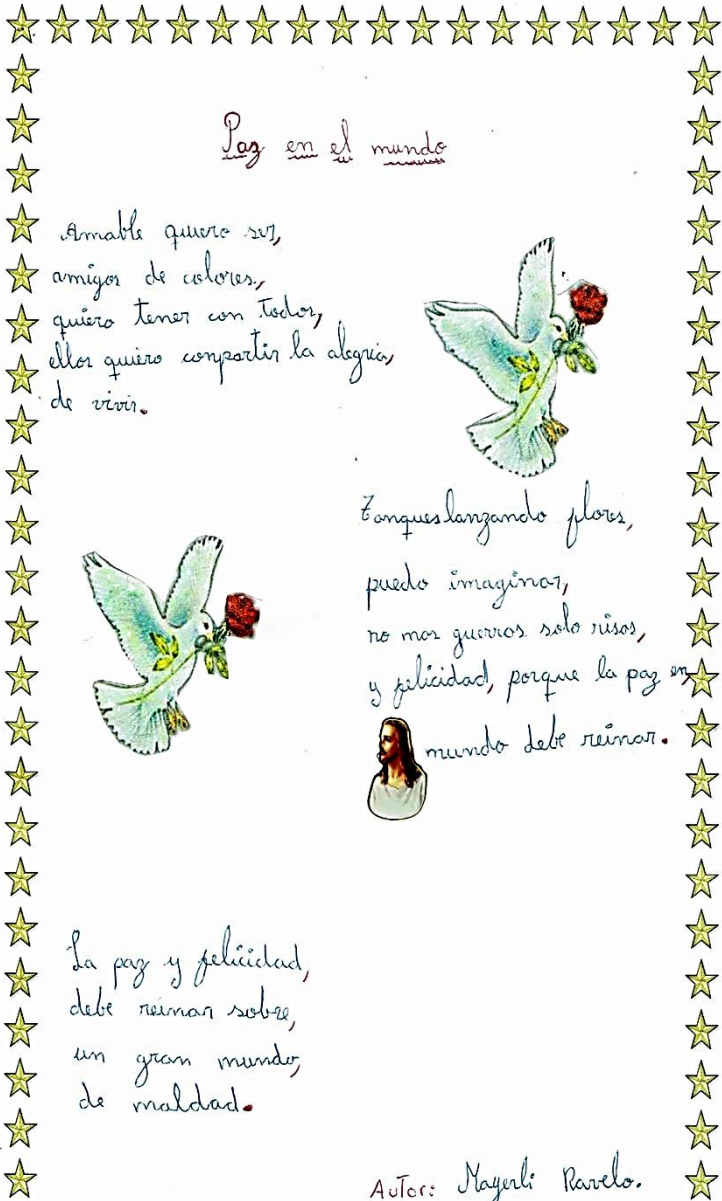 Paz en el mundo
Amable quiero ser,
amigos de colores,
quiero tener con todos,
ellos quiero conpartir la alegria,
de vivir.
Tanques lanzando flores,
puedo imaginar,
no mas guerras solo risas,
y felicidad, porque la paz en,
mundo debe reinar.
La paz y felicidad,
debe reinar sobre,
un gran mundo,
de maldad.
Autor: Mayerli Ravelo.